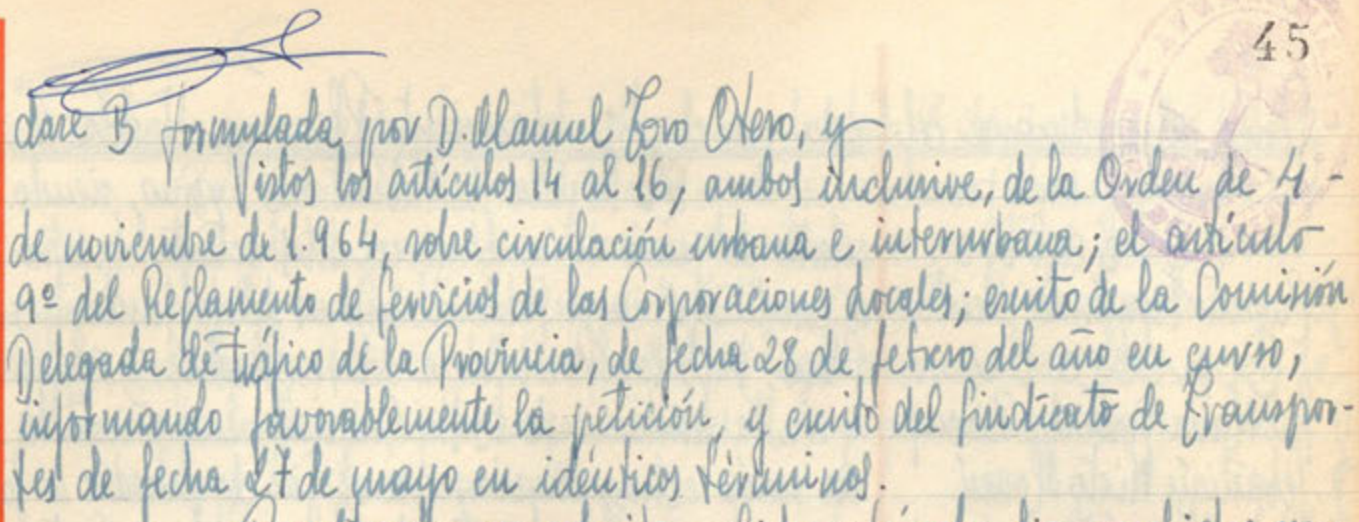 45
clase B formulada por D. Manuel Toro Otero, y
Vistos los artículos 14 al 16, ambos inclusive, de la Orden de 4 -
de noviembre de 1.964, sobre circulación urbana e interurbana; el artículo
9º del Reglamento de Servicios de las Corporaciones Locales; escrito de la Comisión
Delegada de tráfico de la Provincia, de fecha 28 de febrero del año en curso,
informando favorablemente la petición, y escrito del Sindicato de Transpor-
tes de fecha 27 de mayo en idénticos términos.